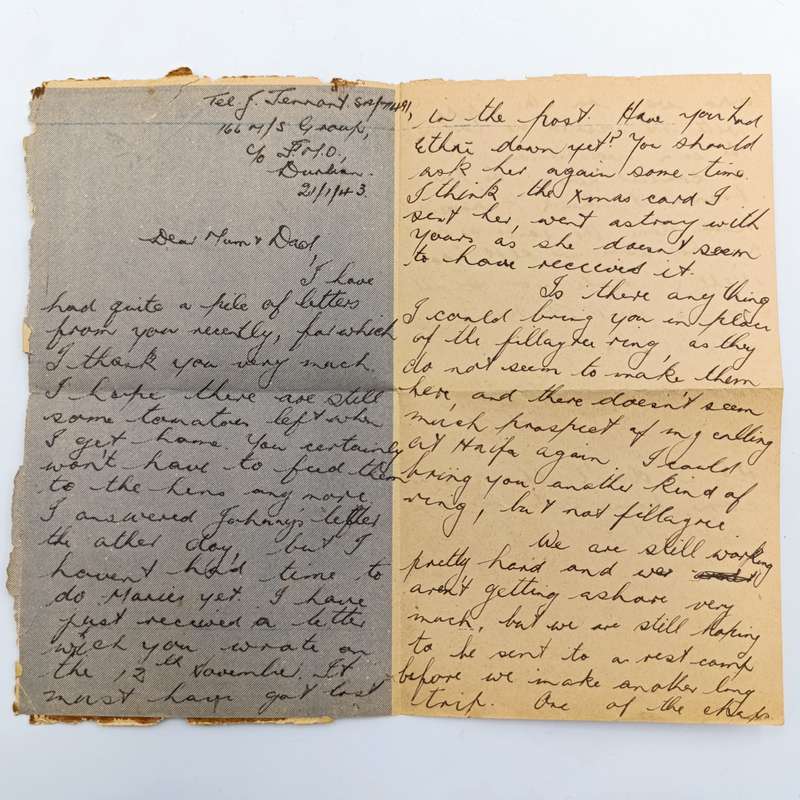 Tel. J. Tennant.
166 M/S Group,
c/o F.M.O.,
Durban.
21/1/43.
Dear Mum & Dad,
I have
had quite a pile of letters
from you recently, for which
I thank you very much.
I hope there are still
some tomatoes left when
I get home. You certainly
won't have to feed them
to the hens any more.
I answered Johnny's letter
the other day, but I
haven't had time to
do Maries yet. I have
just received a letter
which you wrote on
the 12th November. It
must have got lost
in the post. Have you had
down yet? You should
ask her again some time.
I think the Xmas card I
sent her, went astray with
yours as she doesn't seem
to have received it.
Is there anything
I could bring you in place
of the fillagree ring, as they
do not seem to make them
here, and there doesn't seem
much prospect of my calling
at Haifa again. I could
bring you another kind of
ring, but not fillagree.
We are still working
pretty hard and
aren't getting ashore very
much, but we are still hoping
to be sent to a rest camp
before we make another long
trip. One of the chaps